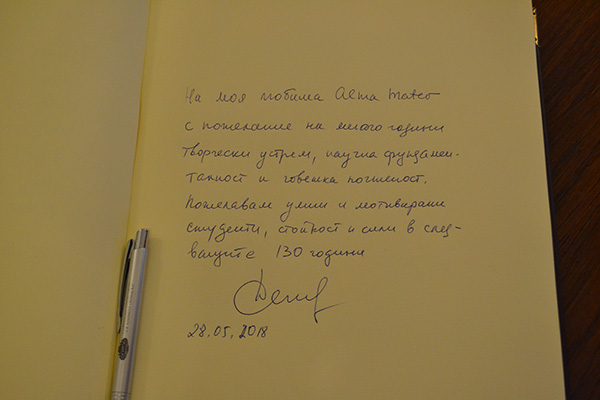 На моя любима Alma Mater
с пожелание на много години
творчески устрем, научна фундамен-
талност и човешка почтеност.
Пожелавам умни и мотивирани
студенти, стойност и сили в след-
ващите 130 години
28.05.2018